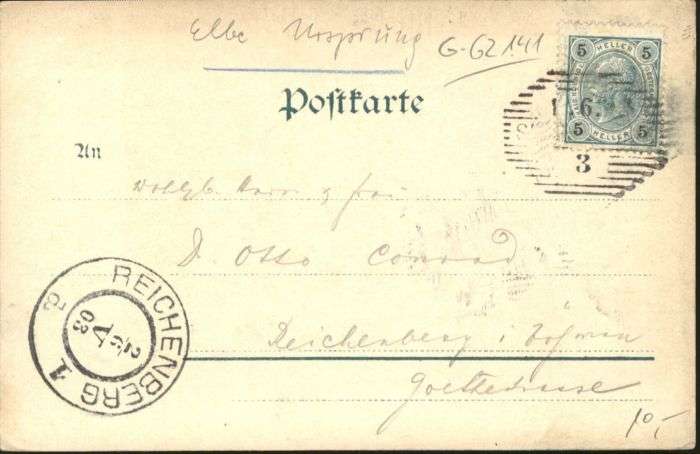 Elbe Ursprung G-G2141
Postkarte
5 HELLER 5
5 HELLER 5
1.6.
3
An
Wohlgb. Herrn & Frau
D. Otto Conrad
Reichenberg i Böhmen
Goethestrasse
REICHENBERG 1
2/6
V
03
10,-